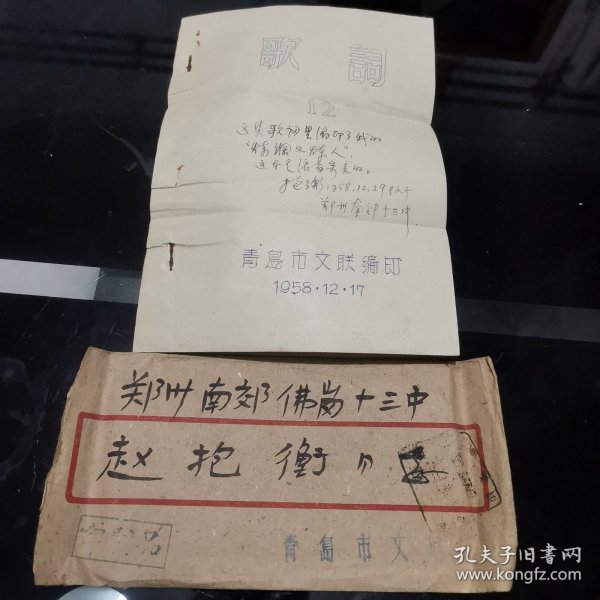 歌詞
12
这集歌初里偏印了我的
“炼鋼又煉人”.
这本是编者寄来的。
抱衡1958.12.29.夕
郑州南郊十三中
青島市文联編印
1958·12·17
郑州南郊佛崗十三中
赵抱衡
青島市文
孔夫子旧书网
www.kongfz.com